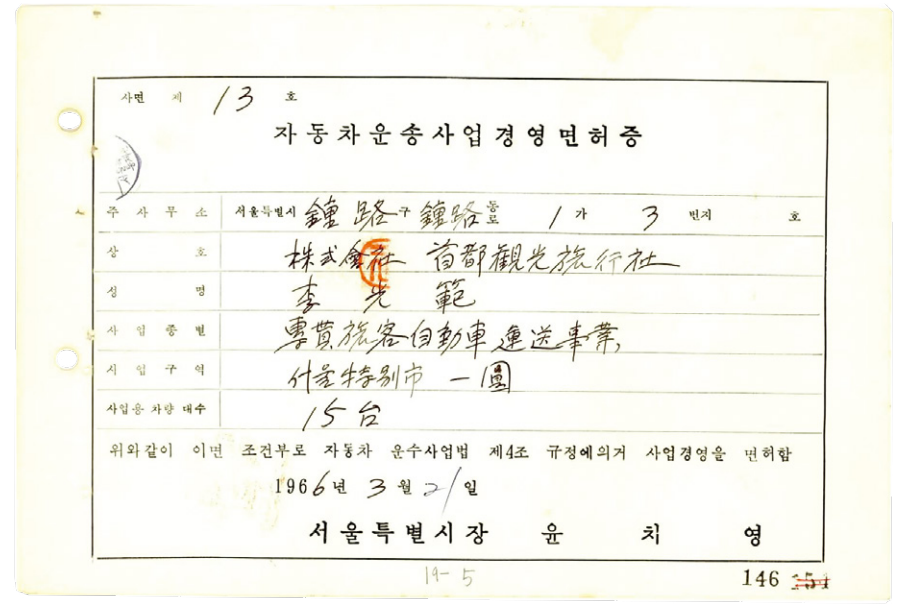 사면 제 13 호
자동차운송사업경영면허증
주사무소 서울특별시 鐘路구 鐘路동로 1가 3번지 호
상호 株式會社 首都觀光旅行社
성명 李光範
사업종별 專貰旅客自動車運送事業
사업구역 서울特別市 一圓
사업용 차량 대수 15台
위와같이 이면 조건부로 자동차 운수사업법 제4조 규정에의거 사업경영을 면허함
1966년 3월 21일
서울특별시장 윤치영
19-5
146 254